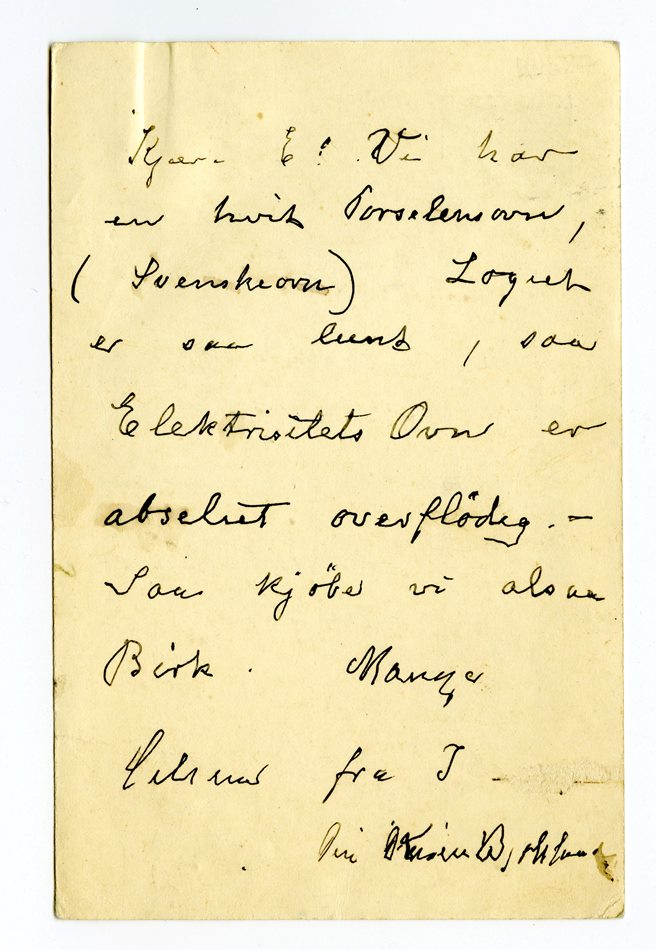 Kjære E! Vi har
en hvit Porselensovn,
(Svenskeovn) Logiet
er saa lunt, saa
Elektrisitets Ovn er
absolut overflödig. –
Saa kjöber vi alsaa
Birk. Mange
Hilsener fra I
Din